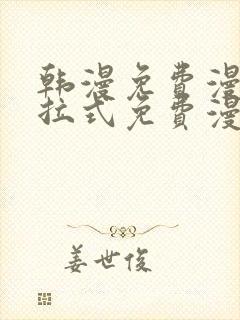 韩漫免费漫
拉式免费漫
姜世俊